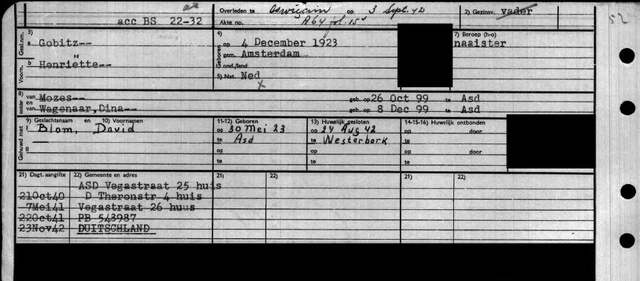 acc BS 22-32
Overleden te Oswiecim op 3 Sept. 42
Akte no. A 64 fol. 15
2) Gezinsv. vader
52
3) Gesl.nm. a Gobitz--
Voorn. b Henriëtte--
4) Geboren op 4 December 1923
gem. Amsterdam
prov./land
5) Nat. Ned
x
7) Beroep (h-o)
naaister
8) van Mozes-- geb. op 26 Oct 99 te Asd
en
van Wagenaar, Dina-- geb. op 8 Dec 99 te Asd
9) Geslachtsnaam en 10) Voornamen 11-12) Geboren 13) Huwelijk gesloten 14-15-16) Huwelijk ontbonden
Gehuwd met a Blom, David op 30 Mei 23 op 24 Aug 42 op door
te Asd te Westerbork te
b op op op door
te te te
21) Dagt. aangifte 22) 21) 22) 21) 22)
ASD Vegastraat 25 huis
21Oct40 D Theronstr 4 huis
7Mei41 Vegastraat 26 huus
22Oct41 PB 548987
23Nov42 DUITSCHLAND